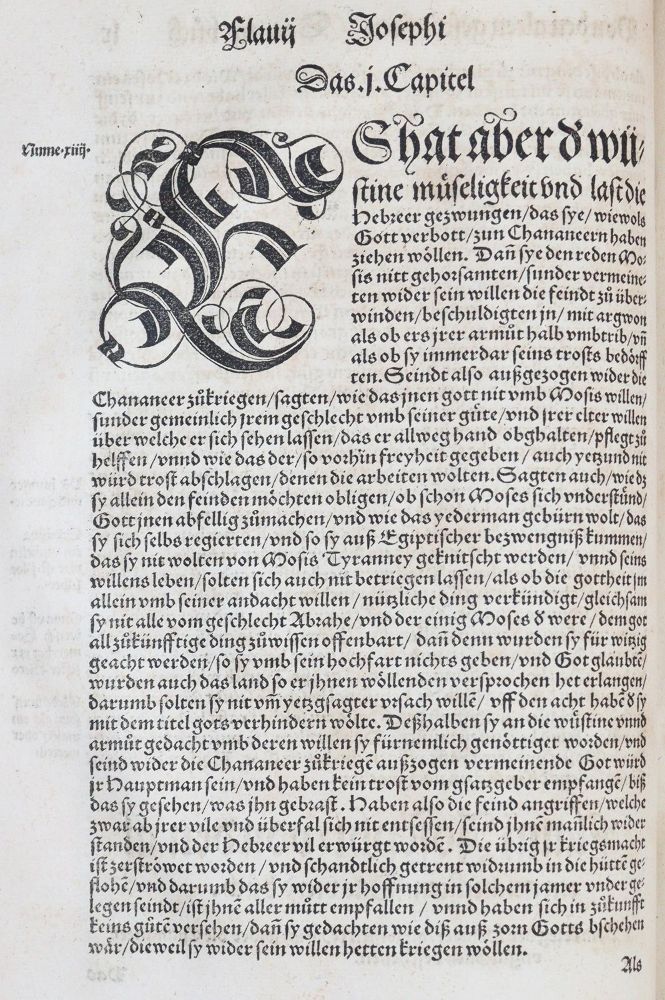 Flauij Josephi
Das .j. Capitel
Nume. xiiij.
ES hat aber d̕ wü-
stine müseligkeit vnd last die
Hebreer gezwungen / das sye / wiewols
Gott verbott / zun Chananeern haben
ziehen wöllen. Dañ sye den reden Mo-
sis nitt gehorsamten / sunder vermeine-
ten wider sein willen die feindt zů über-
winden / beschuldigten jn / mit argwon
als ob ers jrer armůt halb vmbtrib / vñ
als ob sy immerdar seins trosts bedörff
ten. Seindt also außgezogen wider die
Chananeer zůkriegen / sagten / wie das jnen gott nit vmb Mosis willen /
sunder gemeinlich jrem geschlecht vmb seiner güte / vnd jrer elter willen
über welche er sich sehen lassen / das er allweg hand obghalten / pflegt zů
helffen / vnnd wie das der / so vorhin freyheit gegeben / auch yetzund nit
würd trost abschlagen / denen die arbeiten wolten. Sagten auch / wie dz
sy allein den feinden möchten obligen / ob schon Moses sich vnderstünd /
Gott jnen abfellig zůmachen / vnd wie das yederman gebürn wolt / das
sy sich selbs regierten / vnd so sy auß Egiptischer bezwengniß kummen /
das sy nit wolten von Mosis Tyranney geknitscht werden / vnnd seins
willens leben / solten sich auch nit betriegen lassen / als ob die gottheit jm
allein vmb seiner andacht willen / nützliche ding verkündigt / gleichsam
sy nit alle vom geschlecht Abrahe / vnd der einig Moses d̕ were / dem got
all zůkünfftige ding zůwissen offenbart / dañ denn wurden sy für witzig
geacht werden / so sy vmb sein hochfart nichts geben / vnd Got glaubtē /
wurden auch das land so er jhnen wöllenden versprochen het erlangen /
darumb solten sy nit vm̄ yetzgsagter vrsach willē / vff den acht habē d̕ sy
mit dem titel gots verhindern wölte. Deßhalben sy an die wüstine vnnd
armůt gedacht vmb deren willen sy fürnemlich genöttiget worden / vnd
seind wider die Chananeer zůkriegē außzogen vermeinende Got würd
jr Hauptman sein / vnd haben kein trost vom gsatzgeber empfangē / biß
das sy gesehen / was jhn gebrast. Haben also die feind angriffen / welche
zwar ab jrer vile vnd überfal sich nit entsessen / seind jhnē mañlich wider
standen / vnd der Hebreer vil erwürgt wordē. Die übrig jr kriegsmacht
ist zerströwet worden / vnd schandtlich getrent widrumb in die hüttē ge-
flohē / vnd darumb das sy wider jr hoffnung in solchem jamer vnder ge-
legen seindt / ist jhnē aller můtt empfallen / vnnd haben sich in zůkunfft
keins gůtē versehen / dañ sy gedachten wie diß auß zorn Gotts bschehen
wår / dieweil sy wider sein willen hetten kriegen wöllen.
Als